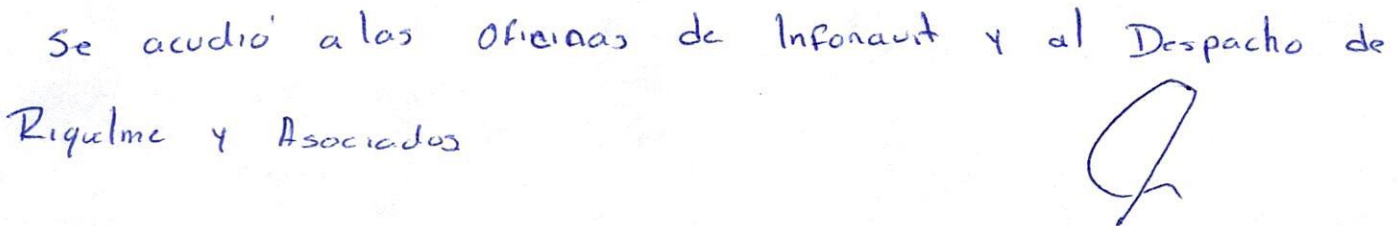 Se acudió a las Oficinas de Infonavit y al Despacho de
Riquelme y Asociados